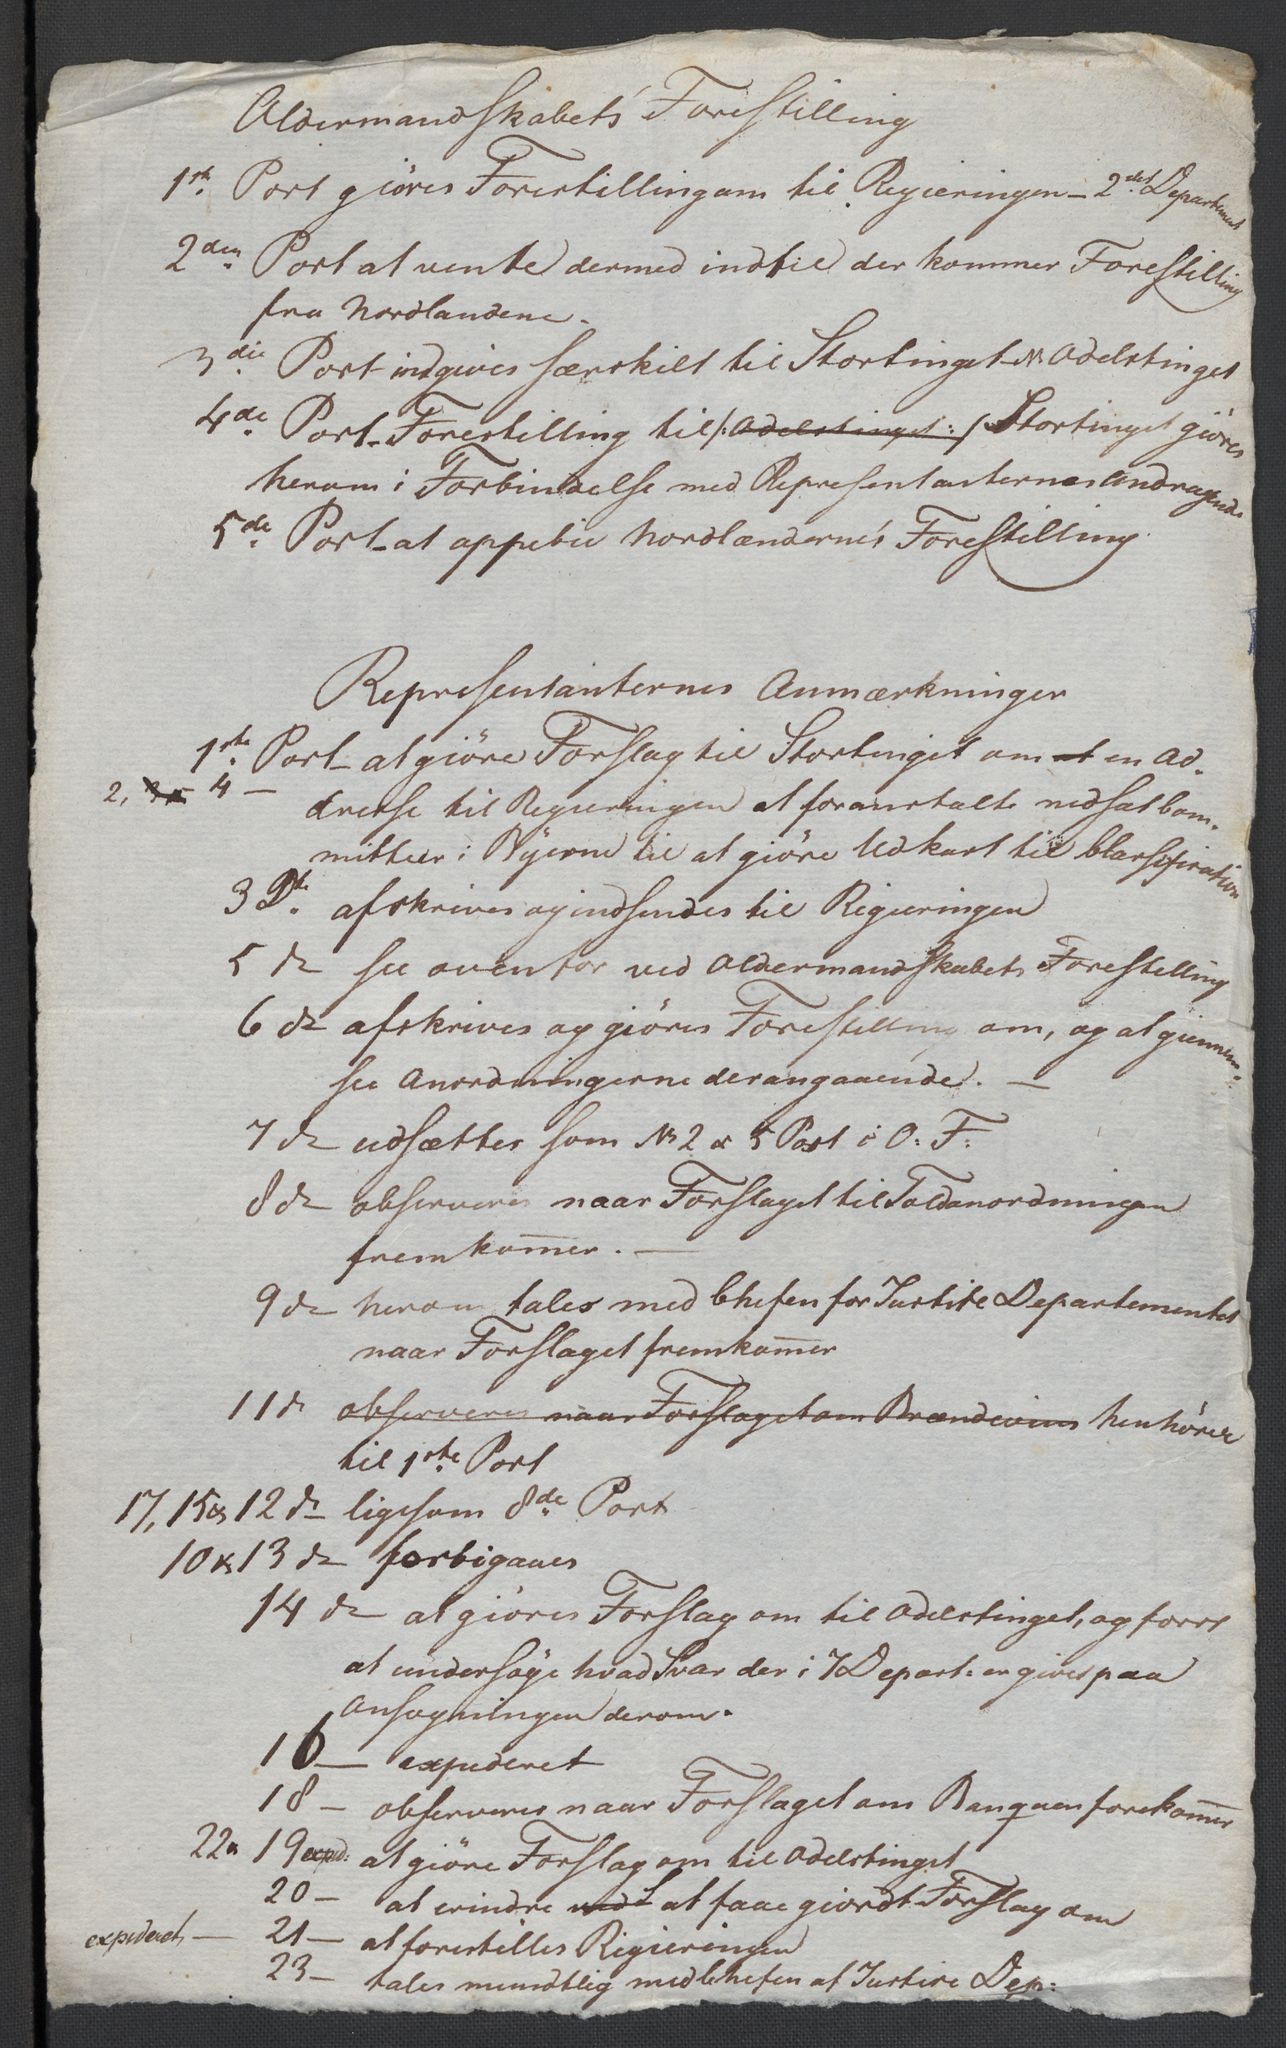 Aldermandskabets Forestilling
1ste Post giöres Forestillingam til Regieringen - 2det Departement
2den Post at vente dermed indtil der kommer Forestilling
fra Nordlandene.
3die Post indgives særskilt til Stortinget Adelstinget
4de Post - Forestilling til /: Adelstinget :/ Stortinget giöres
herom i Forbindelse med Representanternes Andragende
5de Post - at oppebie Nordlændernes Forestilling
Representanternes Anmærkninger
1ste Post - at giöre Forslag til Stortinget om at en Ad-
2, 3 4 - dresse til Regieringen at foranstalte nedsat Com-
mitteer i Byerne til at giöre Udkast til Classification
3 Dto. afskrives og indsendes til Regieringen
5 do see ovenfor ved Aldermandskabets Forestilling
6 do afskrives og giöres Forestilling om, og at giennem-
see Anordningerne derangaaende. -
7 do udsættes som No 2 & 5 Post i O: F:
8 do observeres naar Forslaget til Toldanordningen
fremkommer. -
9 do herom tales med Chefen for Justits Departementet
naar Forslaget fremkommer
11 do observeres naar Forslaget om Brændeviins henhörer
til 1ste Post
17, 15 & 12 do ligesom 8de Post
10 & 13 do forbigaaes
14 do at giöres Forslag om til Adelstinget, og først
at undersöge hvad Svar der i 7 Depart: er givet paa
Ansögningen derom.
16 - expederet
18 - observeres naar Forslaget om Banquen forekommer
22 & 19 exped: at giöre Forslag om til Adelstinget
20 - at erindre at faae giordt Forslag om
expederet - 21 - at forestilles Regieringen
23 - tales mundtlig med Chefen af Justice Dep: